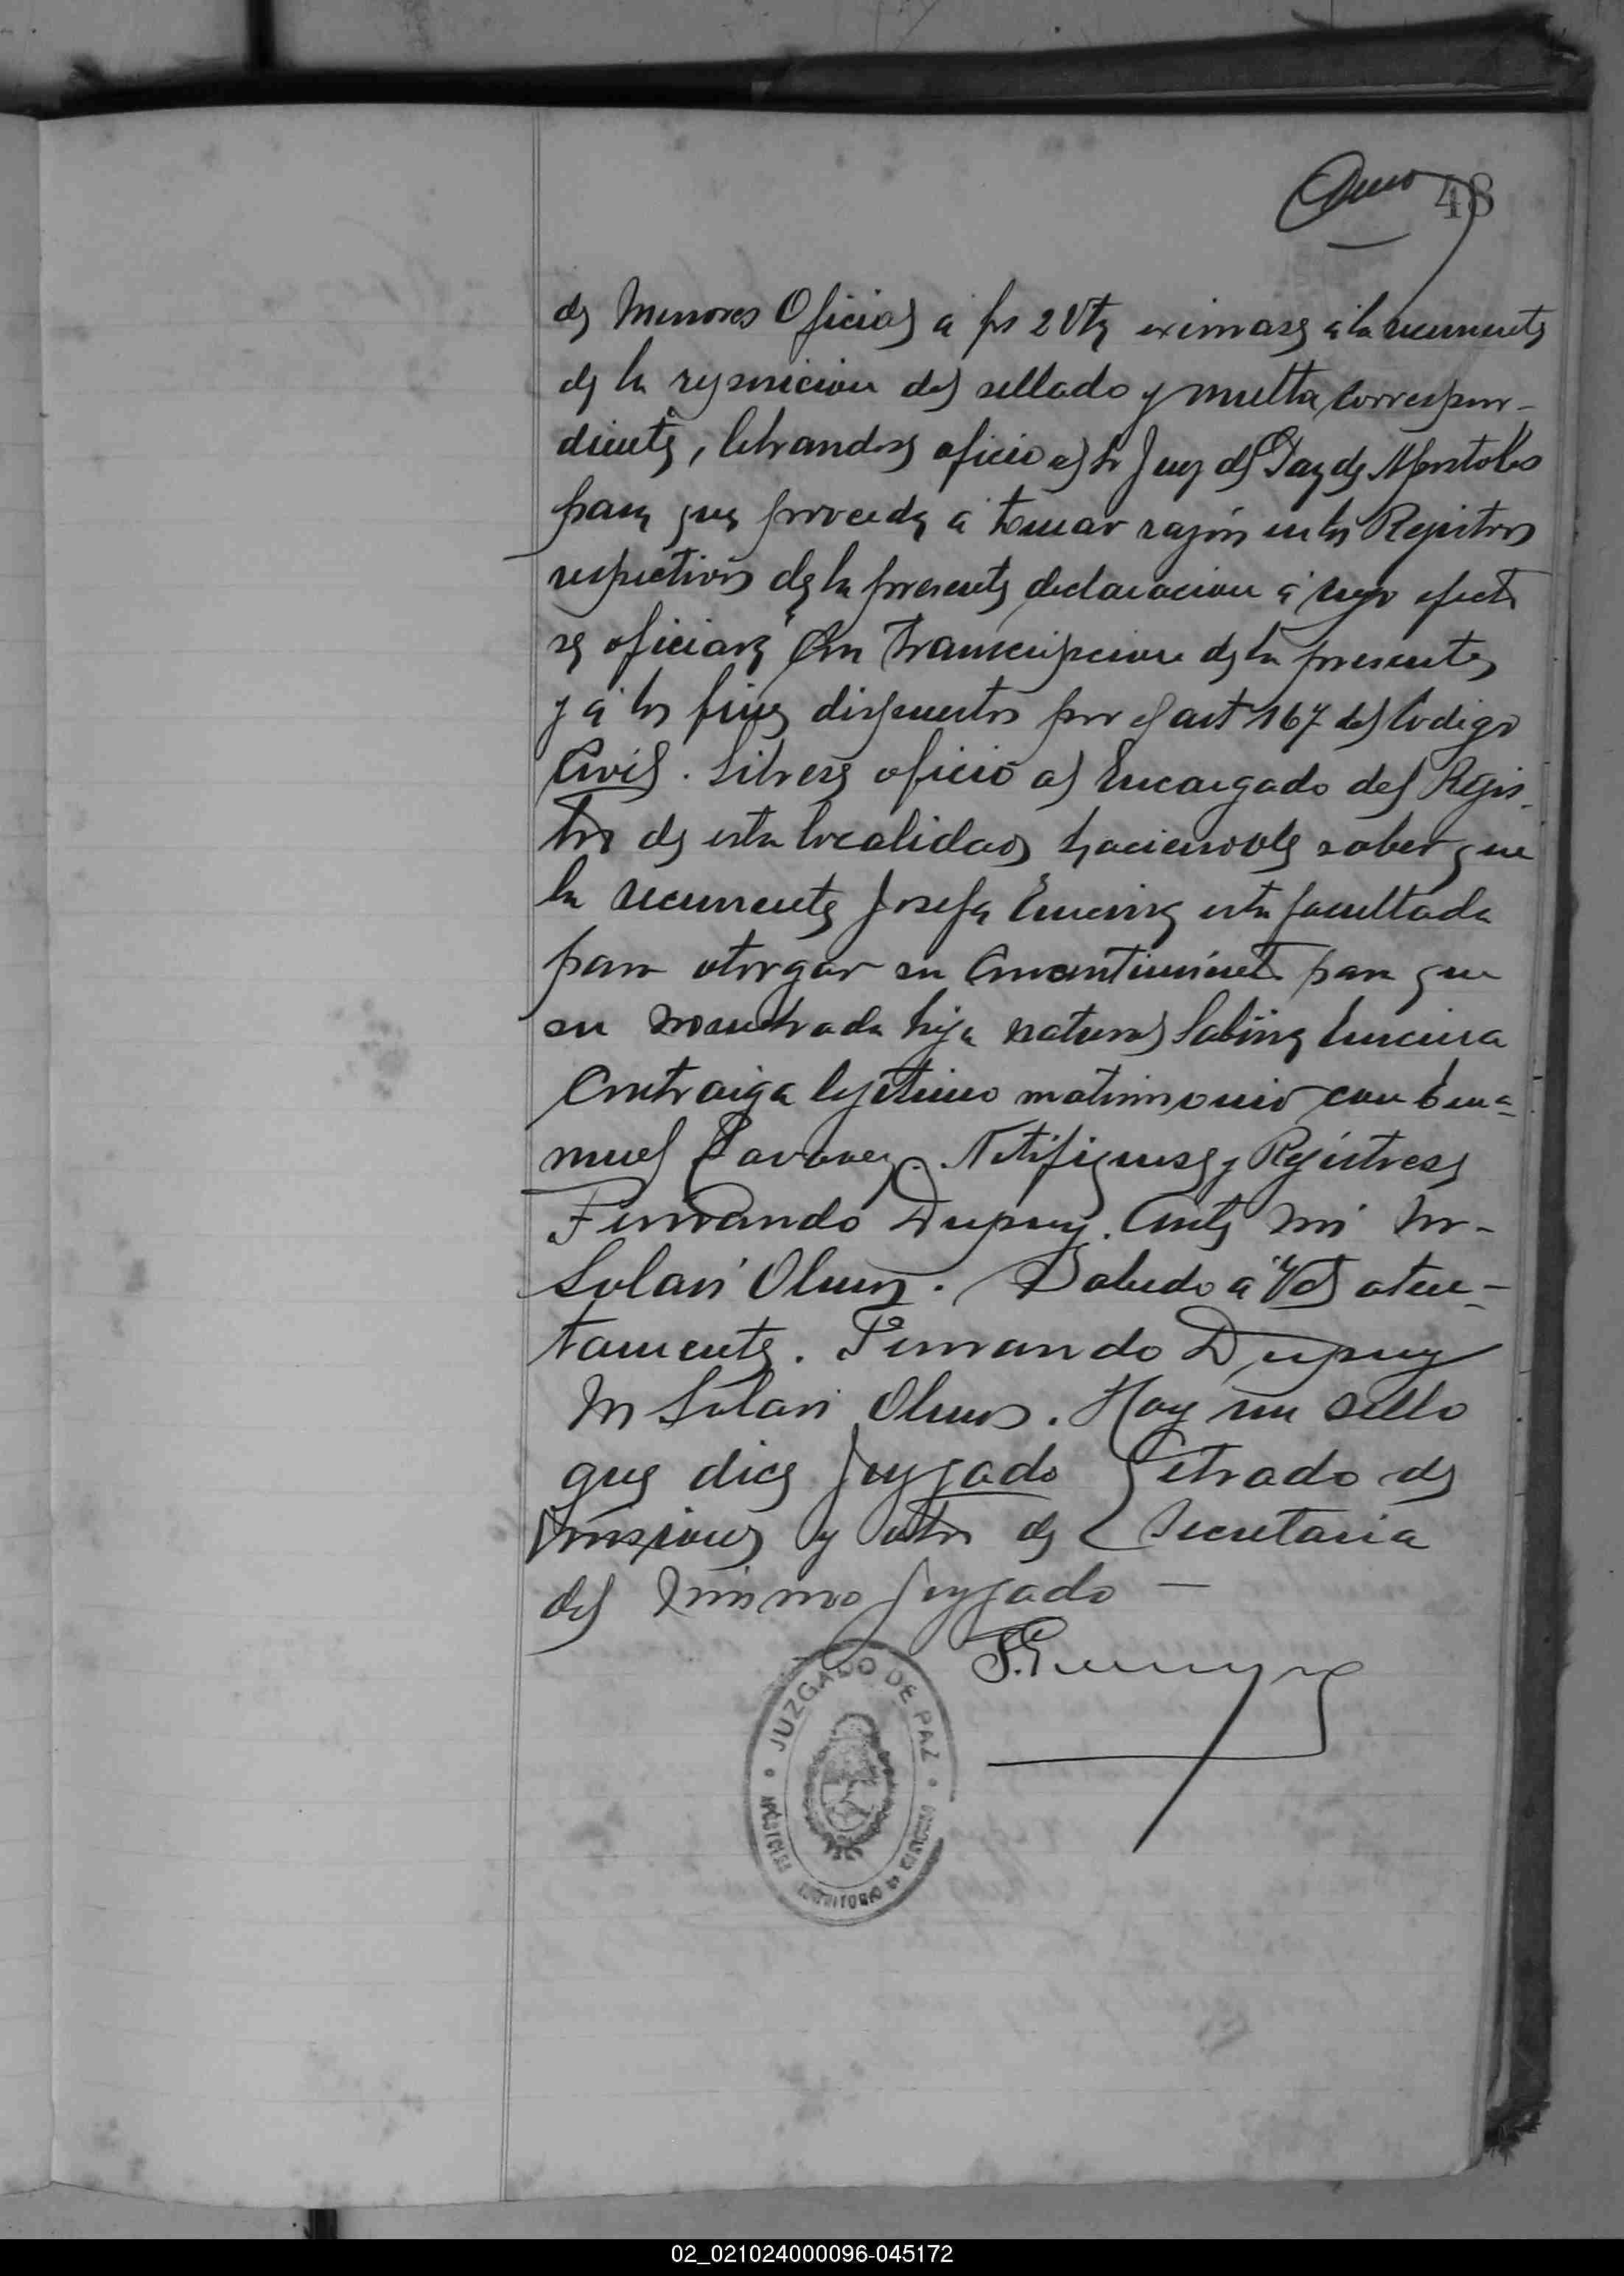 48
de Menores Oficial a fs 2 Vta eximase a la recurrente
de la reposicion del sellado y multa correspon-
diente, librandose oficio al Sr Juez de Paz de Apostoles
para que proceda a tomar razón en los Registros
respectivos de la presente declaracion á cuyo efecto
se oficiará con transcripcion de la presente
y á los fines dispuestos por el art 167 del Codigo
Civil. Librese oficio al Encargado del Regis-
tro de esta localidad haciendole saber que
la recurrente Josefa Encina esta facultada
para otorgar su consentimiento para que
su nombrada hija natural Sabina Encina
Contraiga legitimo matrimonio con Ema-
nuel Tavarez. Notifiquese y Registrese
Fernando Dupuy. Ante mi M.
Solari Olmos. Saludo á Vd aten-
tamente. Fernando Dupuy
M Solari Olmos. Hay un sello
que dice Juzgado Letrado de
Misiones y otro de Secretaria
del mismo Juzgado —
JUZGADO DE PAZ
APOSTOLES TERRITORIO DE MISIONES
02_021024000096-045172